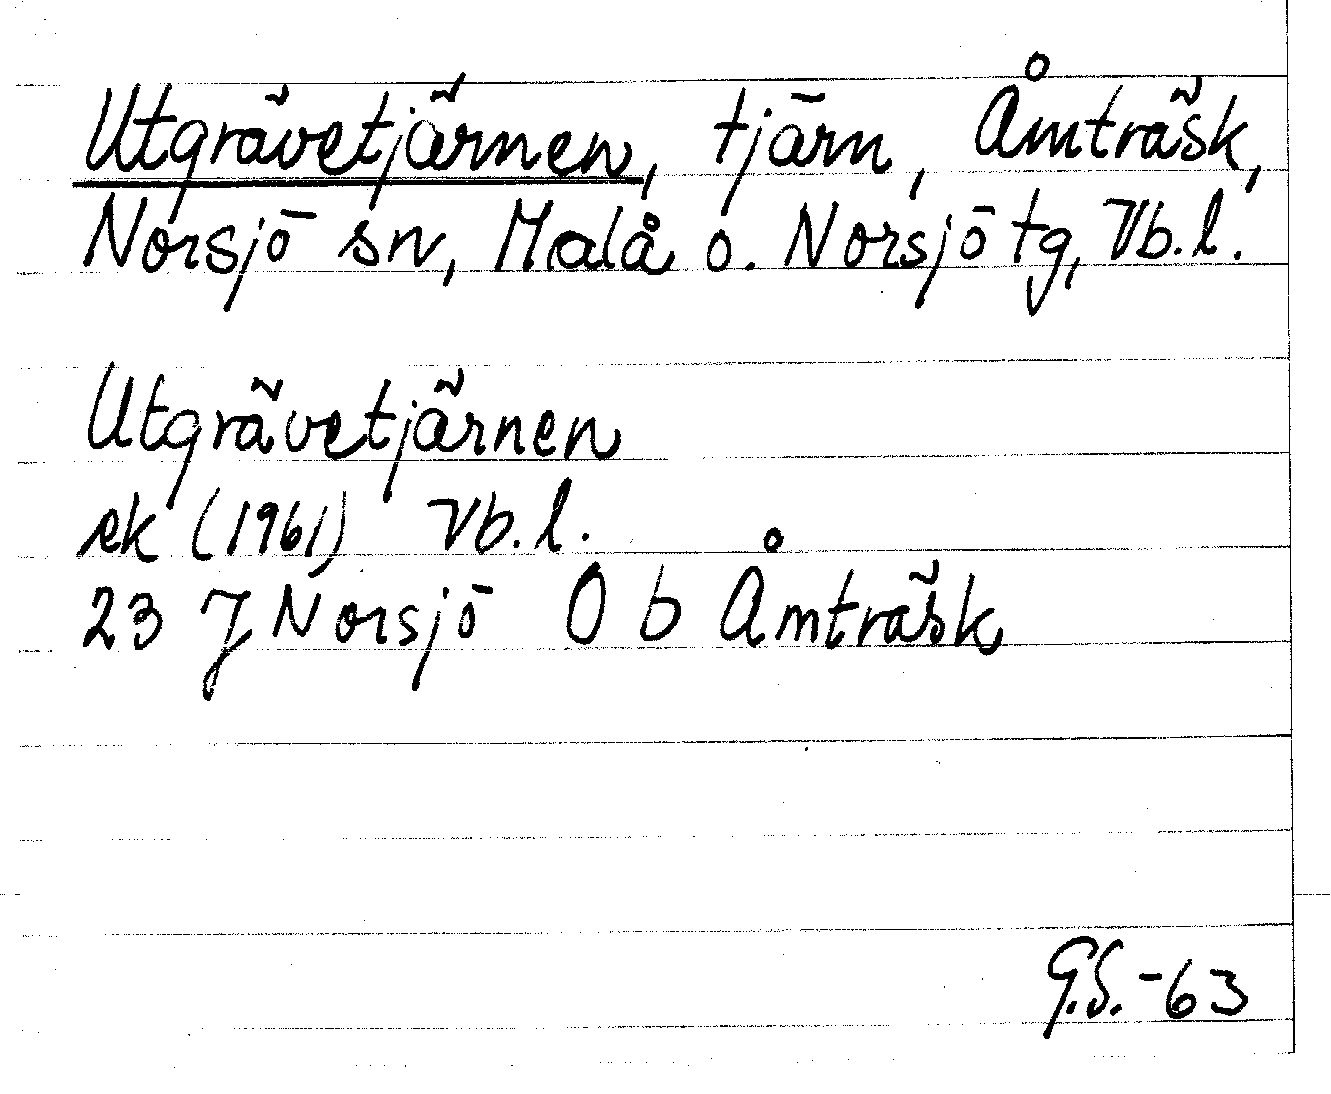 Utgrävetjärnen, tjärn, Åmträsk,
Norsjö sn, Malå o. Norsjö tg, Vb.l.
Utgrävetjärnen
ek (1961) Vb.l.
23 J Norsjö 0 b Åmträsk
G.S.-63